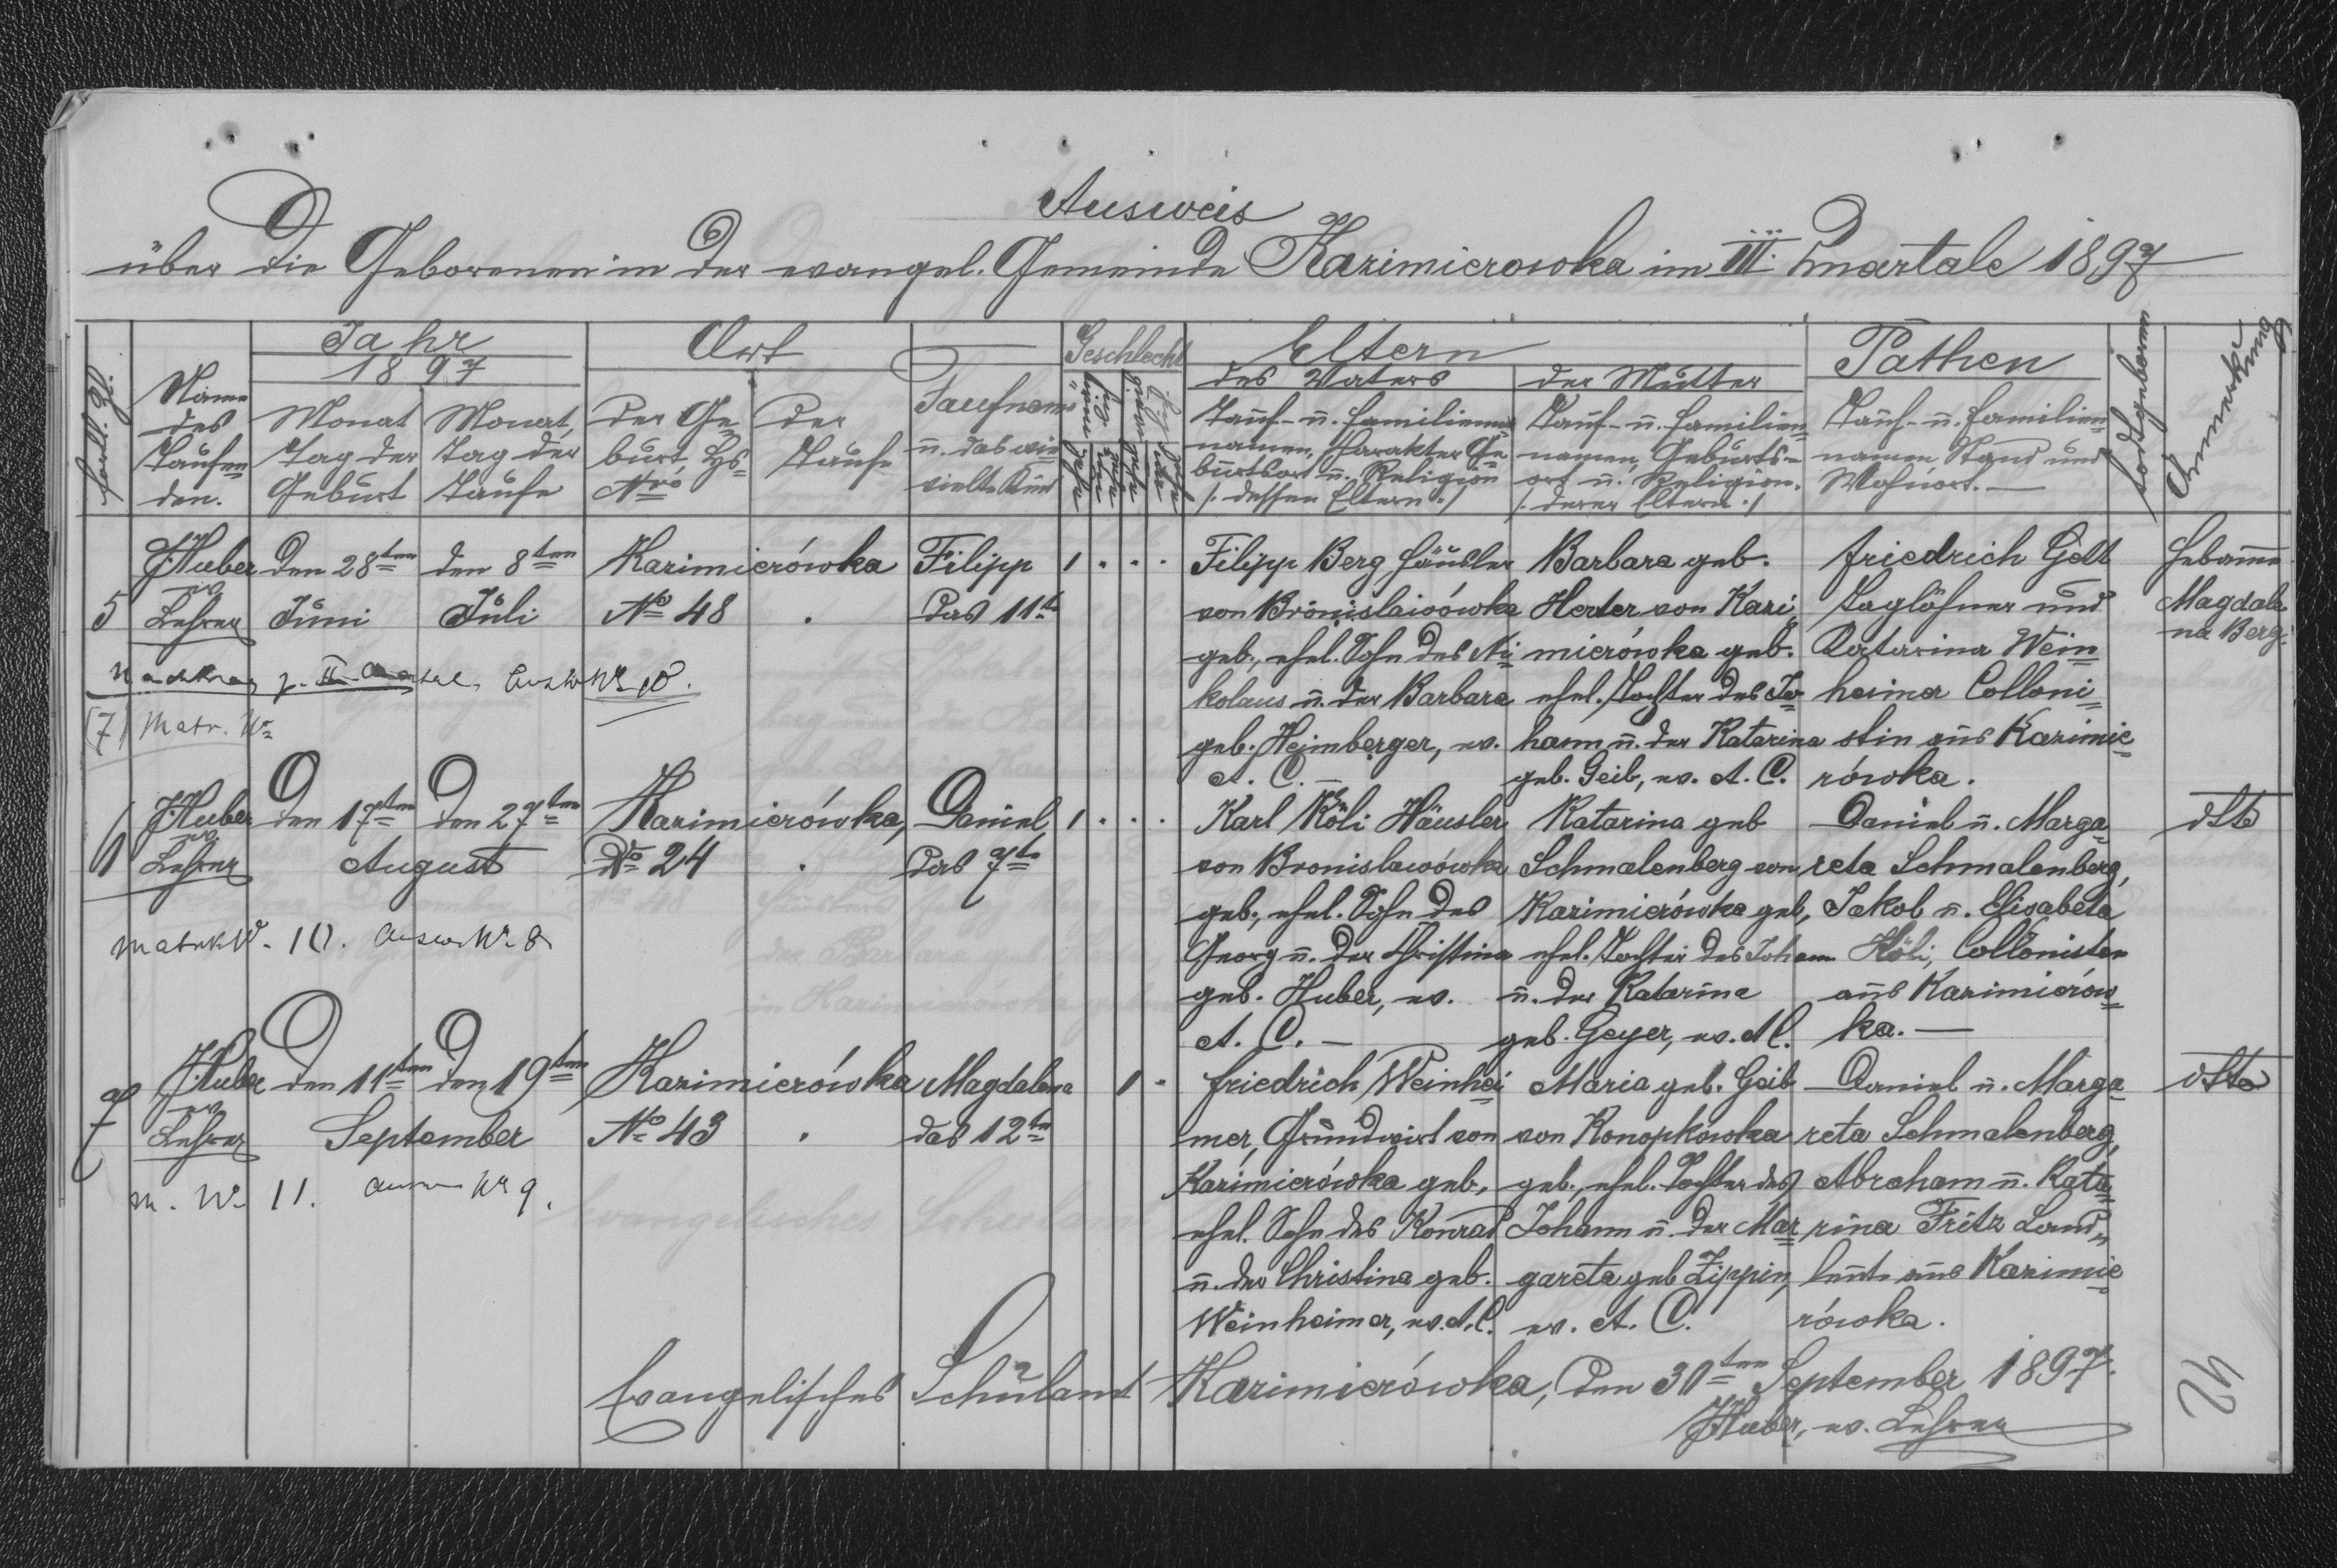 Ausweis
über die Geborenen in der evangel. Gemeinde Kazimierowka im III. Quartale 1897
Fortl. Zl.
Name
des
Taufen=
den.
Jahr
1897
Monat
Tag der
Geburt
Monat,
Tag der
Taufe
Ort
der Ge=
burt Hs=
Nro
der
Taufe
Taufname
u. das wie
vielte Kind
Geschlecht
Eltern
des Vaters
Tauf- u. Familien=
namen, Charakter Ge=
burtsort u. Religion
/. dessen Eltern ./
der Mutter
Tauf- u. Familien=
namen, Geburts=
ort u. Religion.
/. derer Eltern ./
Pathen
Tauf- u. Familien=
namen Stand und
Wohnort. —
todtgeboren
Anmerkung
5
JHuber
ev.
Lehrer
den 28ten
Juni
den 8ten
Juli
Kazimierówka
No 48
Filipp
das 11te
1
Filipp Berg Häusler
von Bronislawówka
geb., ehel. Sohn des Ni=
kolaus u. der Barbara
geb. Heimberger, ev.
A. C. —
Barbara geb.
Herter von Kazi=
mierówka geb.
ehel. Tochter des Jo=
hann u. der Katarina
geb. Geib, ev. A. C.
Friedrich Gelt
Taglöhner und
Katarina Wein=
heimer Colloni=
stin aus Kazimie=
rówka.
Hebamme
Magdale
na Berg.
Nachtrag z. II Quartal, Ausw Nr 10.
(7) Matr. Nr
6
JHuber
ev.
Lehrer
den 17ten den 27ten
August
Kazimierówka,
No 24
Daniel,
das 7te
1
Karl Köli Häusler
von Bronislawówka
geb., ehel. Sohn des
Georg u. der Christina
geb. Huber, ev.
A. C. —
Katarina geb
Schmalenberg von
Kazimierówka geb,
ehel. Tochter des Johann
u. der Katarina
geb. Geyer, ev. A C.
Daniel u. Marga=
reta Schmalenberg,
Jakob u. Elisabeta
Köli, Collonisten
aus Kazimierów=
ka. —
dtto
Matrk Nr. 10. Ausw. Nr 8
7
JHuber
ev.
Lehrer
den 11ten den 19ten
September
Kazimierówka
No 43
Magdalena
das 12te
1
Friedrich Weinhei=
mer, Grundwirt von
Kazimierówka geb.,
ehel. Sohn des Konrad
u. der Christina geb.
Weinheimer, ev. A. C.
Maria geb. Geib
von Konopkówka
geb., ehel. Tochter des
Johann u. der Mar=
gareta geb Zippin,
ev. A. C.
Daniel u. Marga=
reta Schmalenberg,
Abraham u. Kata=
rina Fritz Land=
leute aus Kazimie=
rówka.
dtto
M. Nr 11. Ausw Nr 9.
Evangelisches Schulamt Kazimierówka, den 30ten September 1897.
JHuber, ev. Lehrer